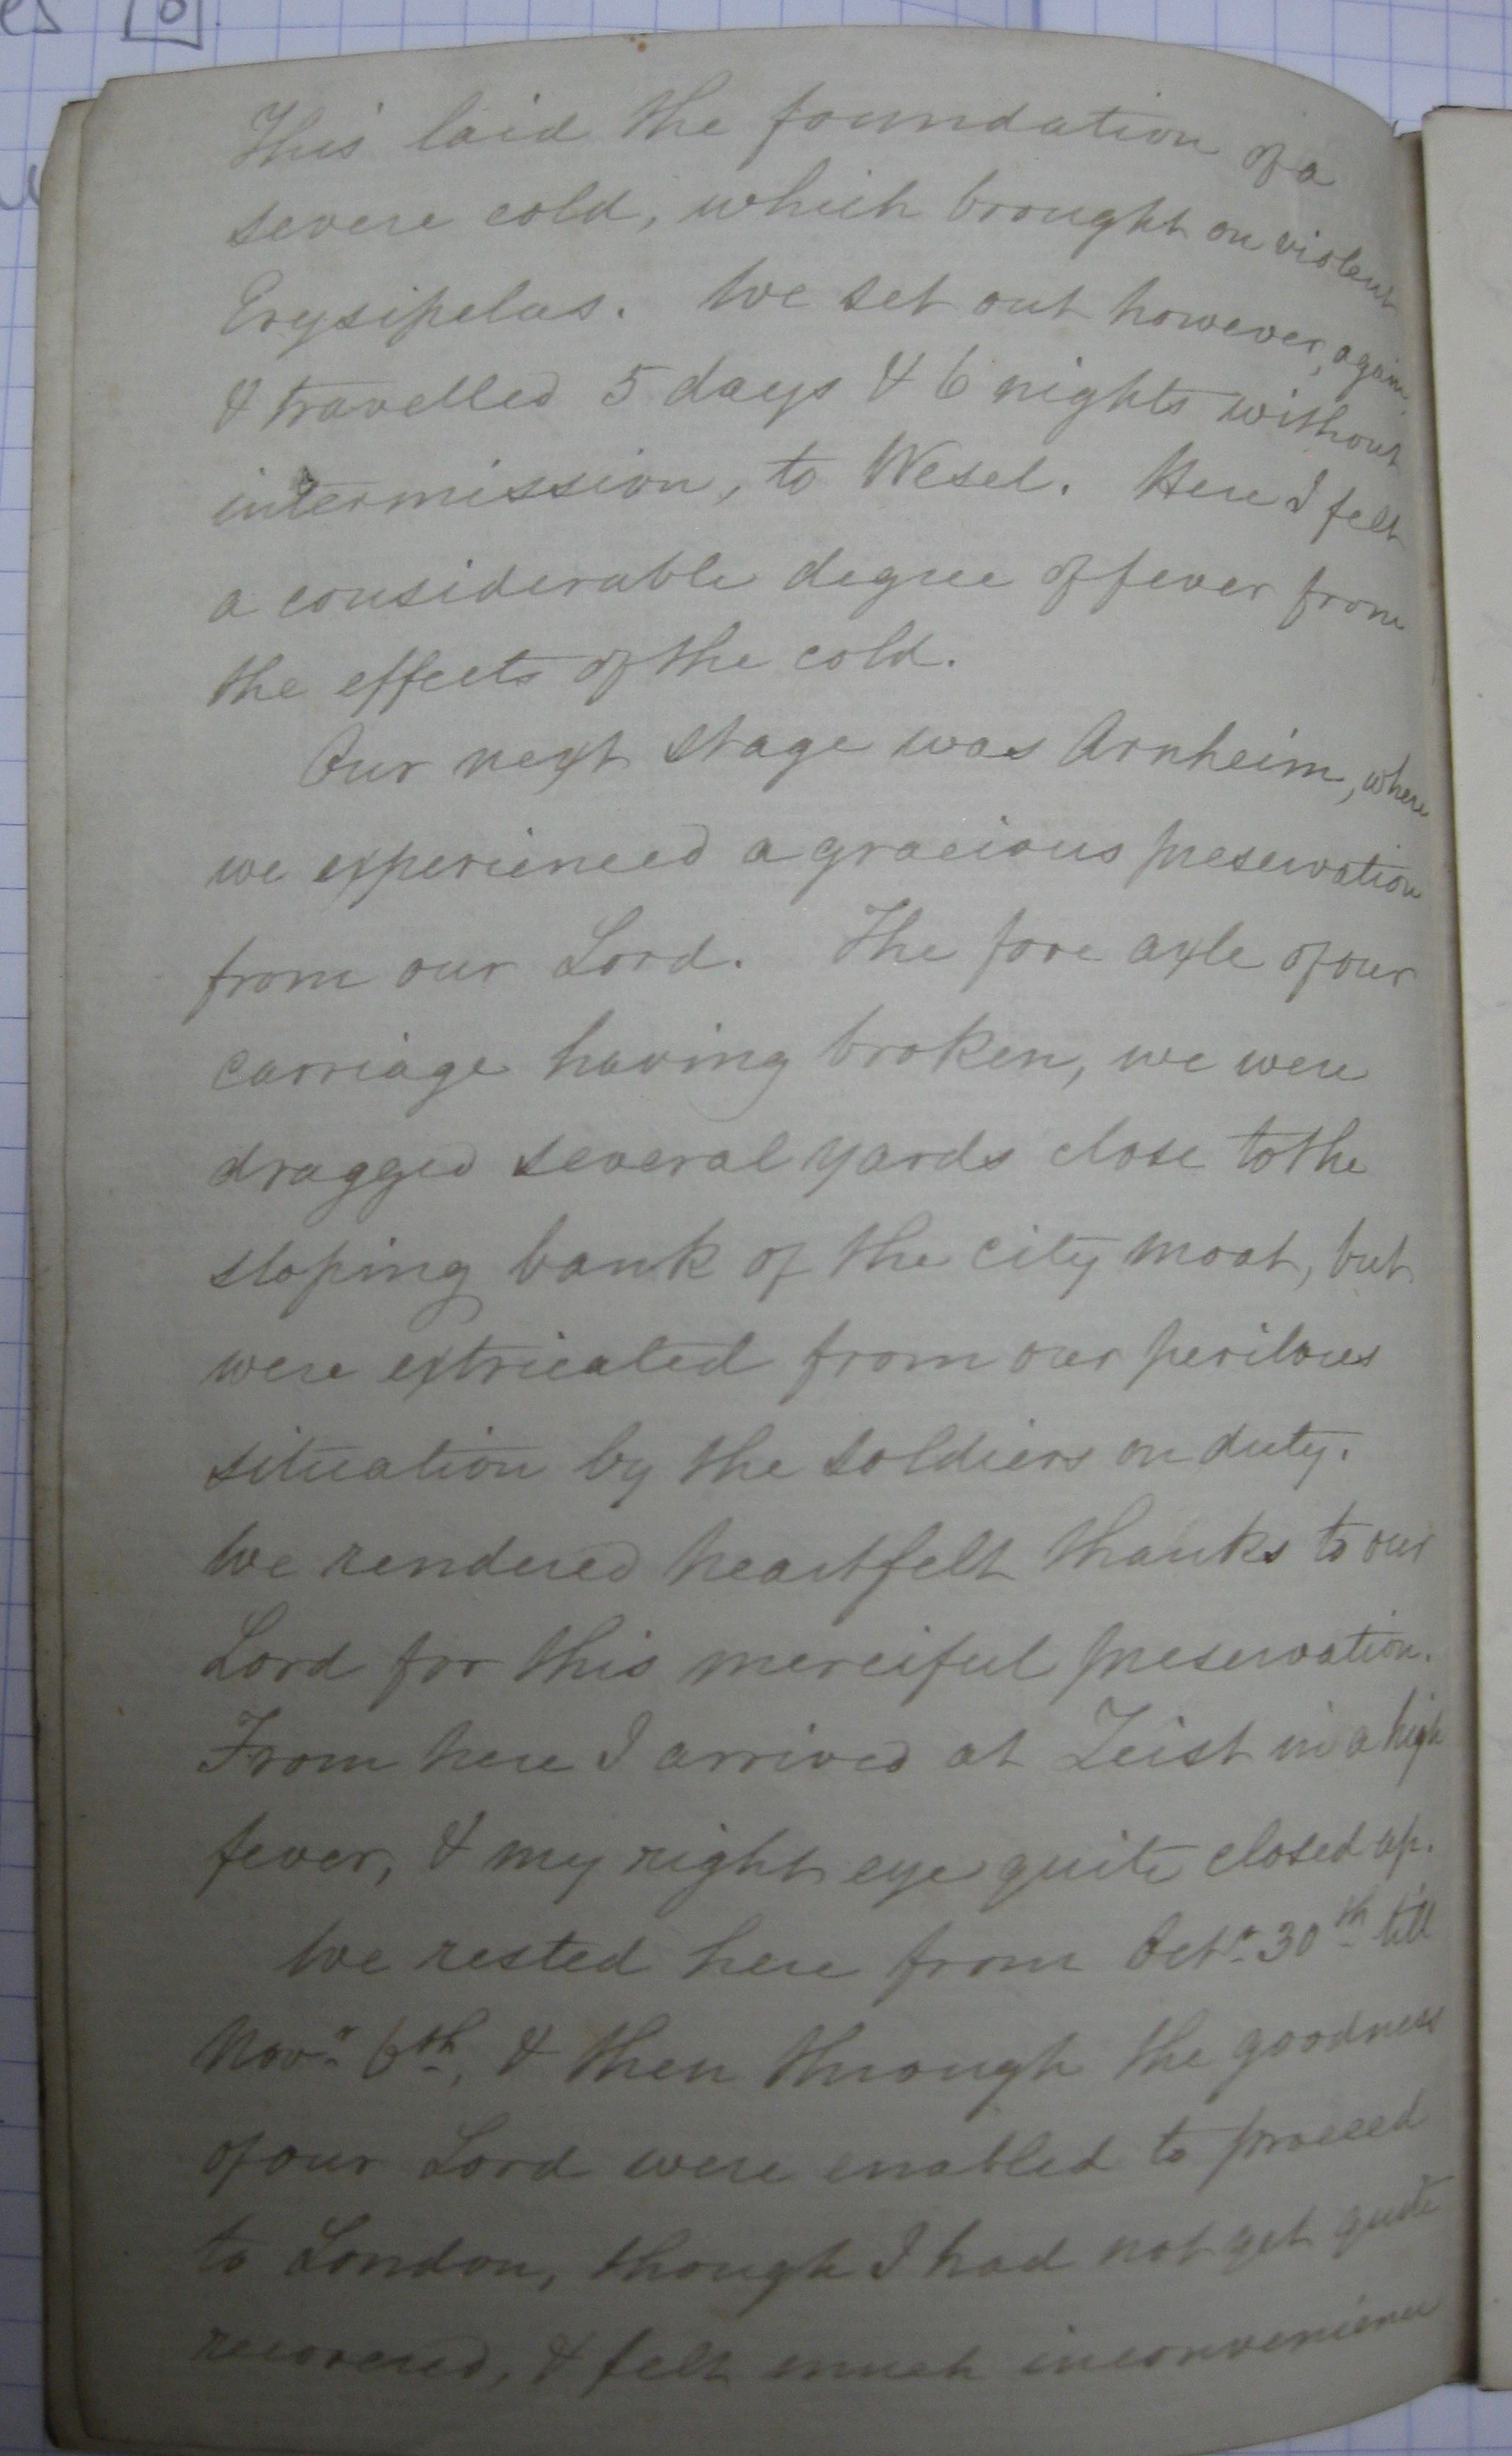 This laid the foundation of a
severe cold, which brought on violent
Erysipelas. We set out however, again,
& travelled 5 days & 6 nights without
intermission, to Wesel. Here I felt
a considerable degree of fever from
the effects of the cold.
Our next stage was Arnheim, where
we experienced a gracious preservation
from our Lord. The fore axle of our
carriage having broken, we were
dragged several yards close to the
sloping bank of the city moat, but
were extricated from our perilous
situation by the soldiers on duty.
We rendered heartfelt thanks to our
Lord for this merciful preservation.
From here I arrived at Zeist in a high
fever, & my right eye quite closed up.
We rested here from Octr. 30th till
Novr. 6th, & then through the goodness
of our Lord were enabled to proceed
to London, though I had not yet quite
recovered, & felt much inconvenience